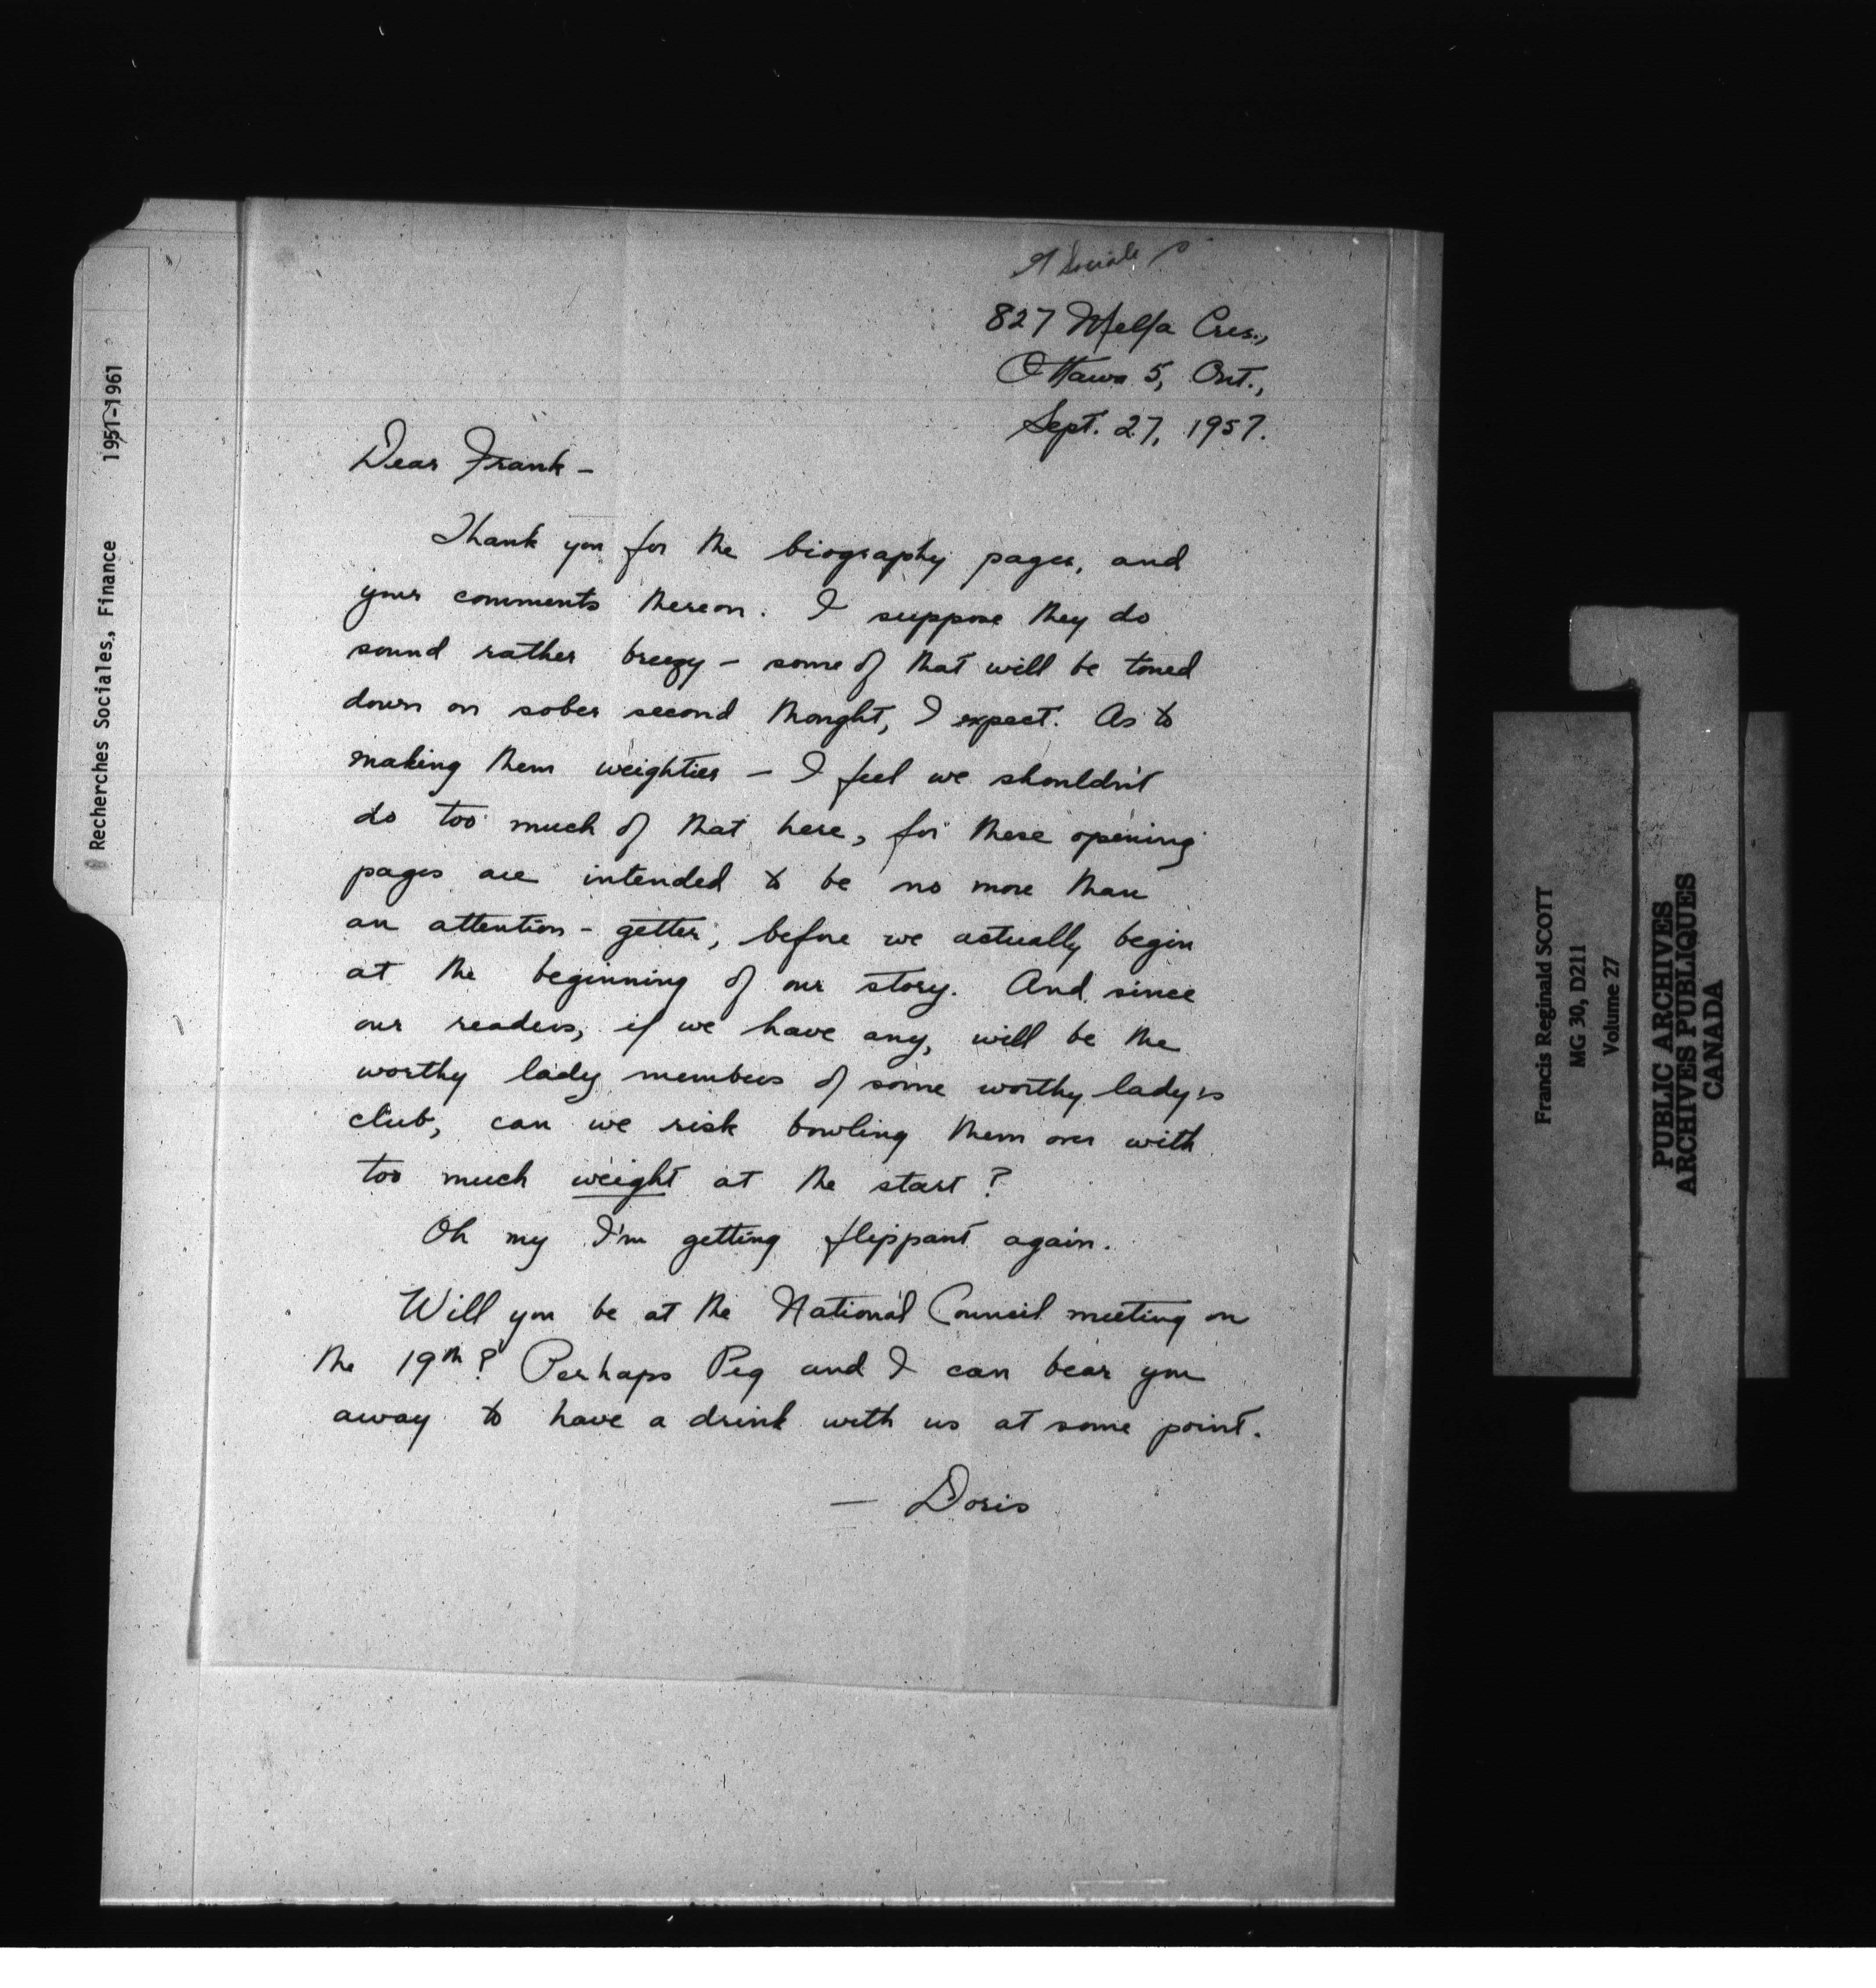 Sociale
827 Melfa Cres.,
Ottawa 5, Ont.,
Sept. 27, 1957.
Dear Frank -
Thank you for the biography pages, and
your comments thereon. I suppose they do
sound rather breezy - some of that will be toned
down on sober second thought, I expect. As to
making them weightier - I feel we shouldn't
do too much of that here, for these opening
pages are intended to be no more than
an attention-getter, before we actually begin
at the beginning of our story. And since
our readers, if we have any, will be the
worthy lady members of some worthy lady's
club, can we risk bowling them over with
too much weight at the start?
Oh my I'm getting flippant again.
Will you be at the National Council meeting on
the 19th? Perhaps Peg and I can bear you
away to have a drink with us at some point.
— Doris
Recherches Sociales, Finance 1951-1961
Francis Reginald SCOTT
MG 30, D211
Volume 27
PUBLIC ARCHIVES
ARCHIVES PUBLIQUES
CANADA